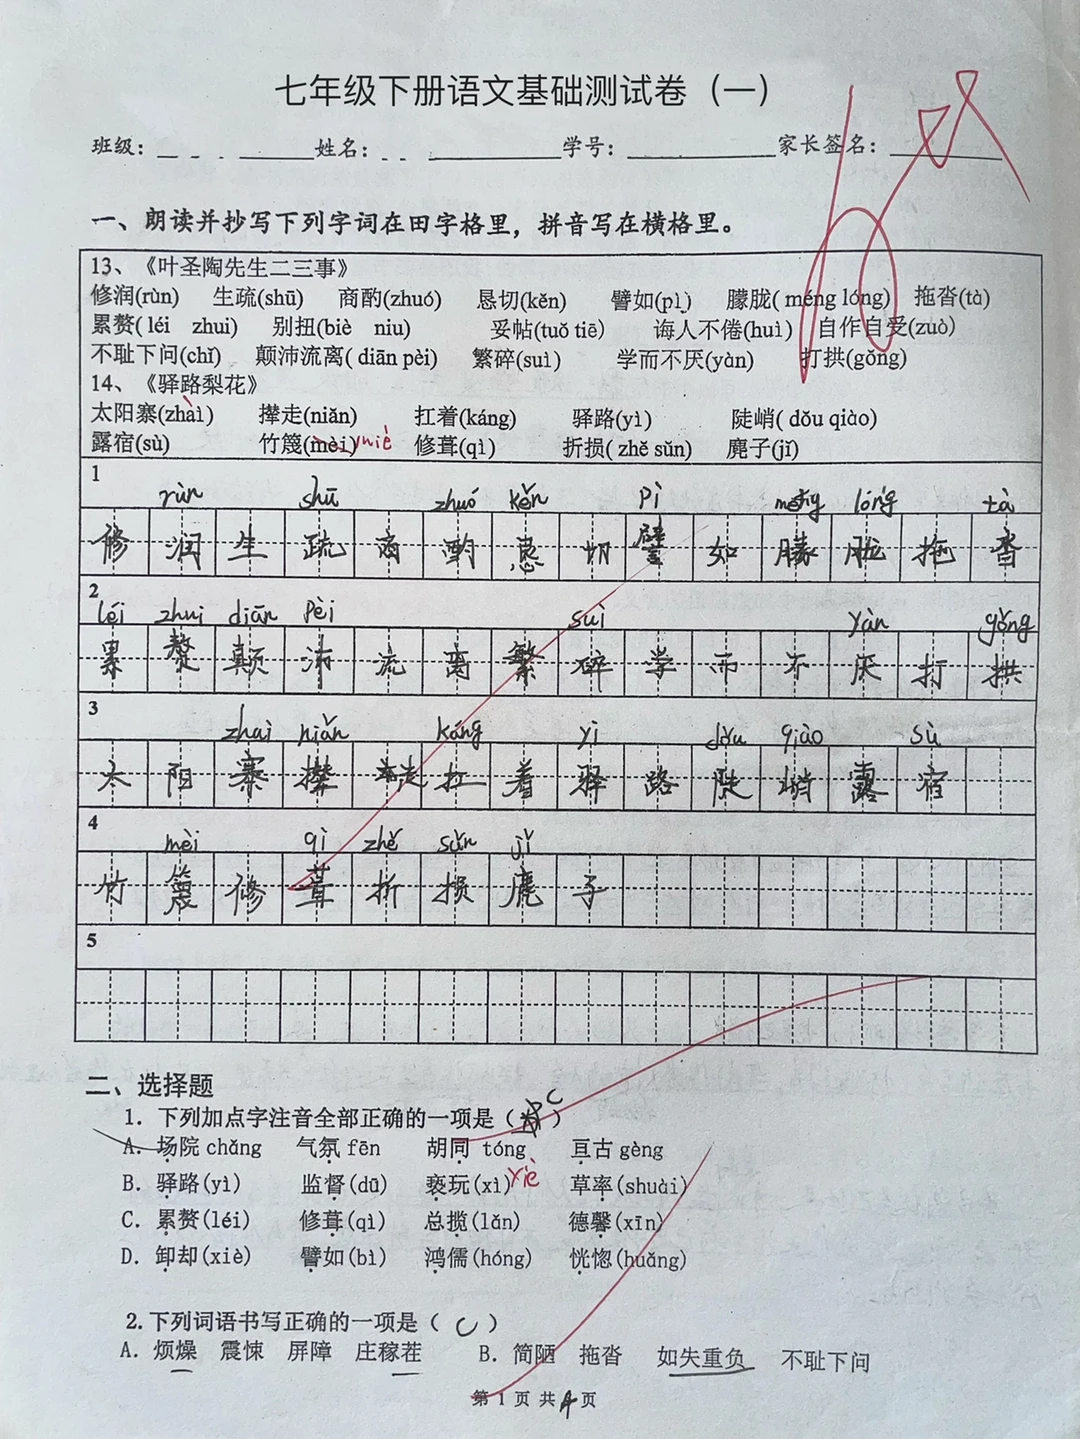 七年级下册语文基础测试卷（一）
班级： 姓名： 学号： 家长签名：
一、朗读并抄写下列字词在田字格里，拼音写在横格里。
13、《叶圣陶先生二三事》
修润(rùn) 生疏(shū) 商酌(zhuó) 恳切(kěn) 譬如(pì) 朦胧( méng lóng) 拖沓(tà)
累赘( léi zhui) 别扭(biè niu) 妥帖(tuǒ tiē) 诲人不倦(huì) 自作自受(zuò)
不耻下问(chǐ) 颠沛流离( diān pèi) 繁碎(suì) 学而不厌(yàn) 打拱(gǒng)
14、《驿路梨花》
太阳寨(zhài) 撵走(niǎn) 扛着(káng) 驿路(yì) 陡峭( dǒu qiào)
露宿(sù) 竹篾(mèi) miè 修葺(qì) 折损( zhé sǔn) 麂子(jǐ)
1
rùn shū zhuó kěn pì méng lóng tà
修 润 生 疏 商 酌 恳 切 譬 如 朦 胧 拖 沓
2
léi zhui diān pèi suì yàn gǒng
累 赘 颠 沛 流 离 繁 碎 学 而 不 厌 打 拱
3
zhai niǎn káng yì dǒu qiào sù
太 阳 寨 撵 走 扛 着 驿 路 陡 峭 露 宿
4
mèi qì zhě sǔn jǐ
竹 篾 修 葺 折 损 麂 子
5
二、选择题
1. 下列加点字注音全部正确的一项是（ C ）
A. 场院 chǎng 气氛 fēn 胡同 tóng 亘古 gèng
B. 驿路(yì) 监督(dū) 亵玩(xì) xiè 草率(shuài)
C. 累赘(léi) 修葺(qì) 总揽(lǎn) 德馨(xīn)
D. 卸却(xiè) 譬如(bì) 鸿儒(hóng) 恍惚(huǎng)
2.下列词语书写正确的一项是（ C ）
A. 烦燥 震悚 屏障 庄稼茬 B. 简陋 拖沓 如失重负 不耻下问
第 1 页 共 4 页